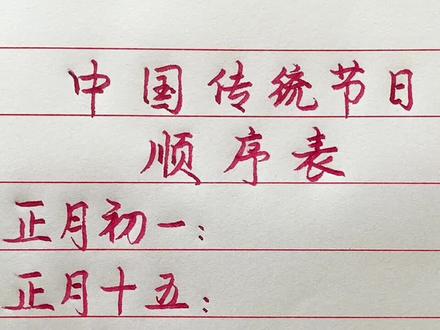 中国传统节日
顺序表
正月初一：
正月十五：